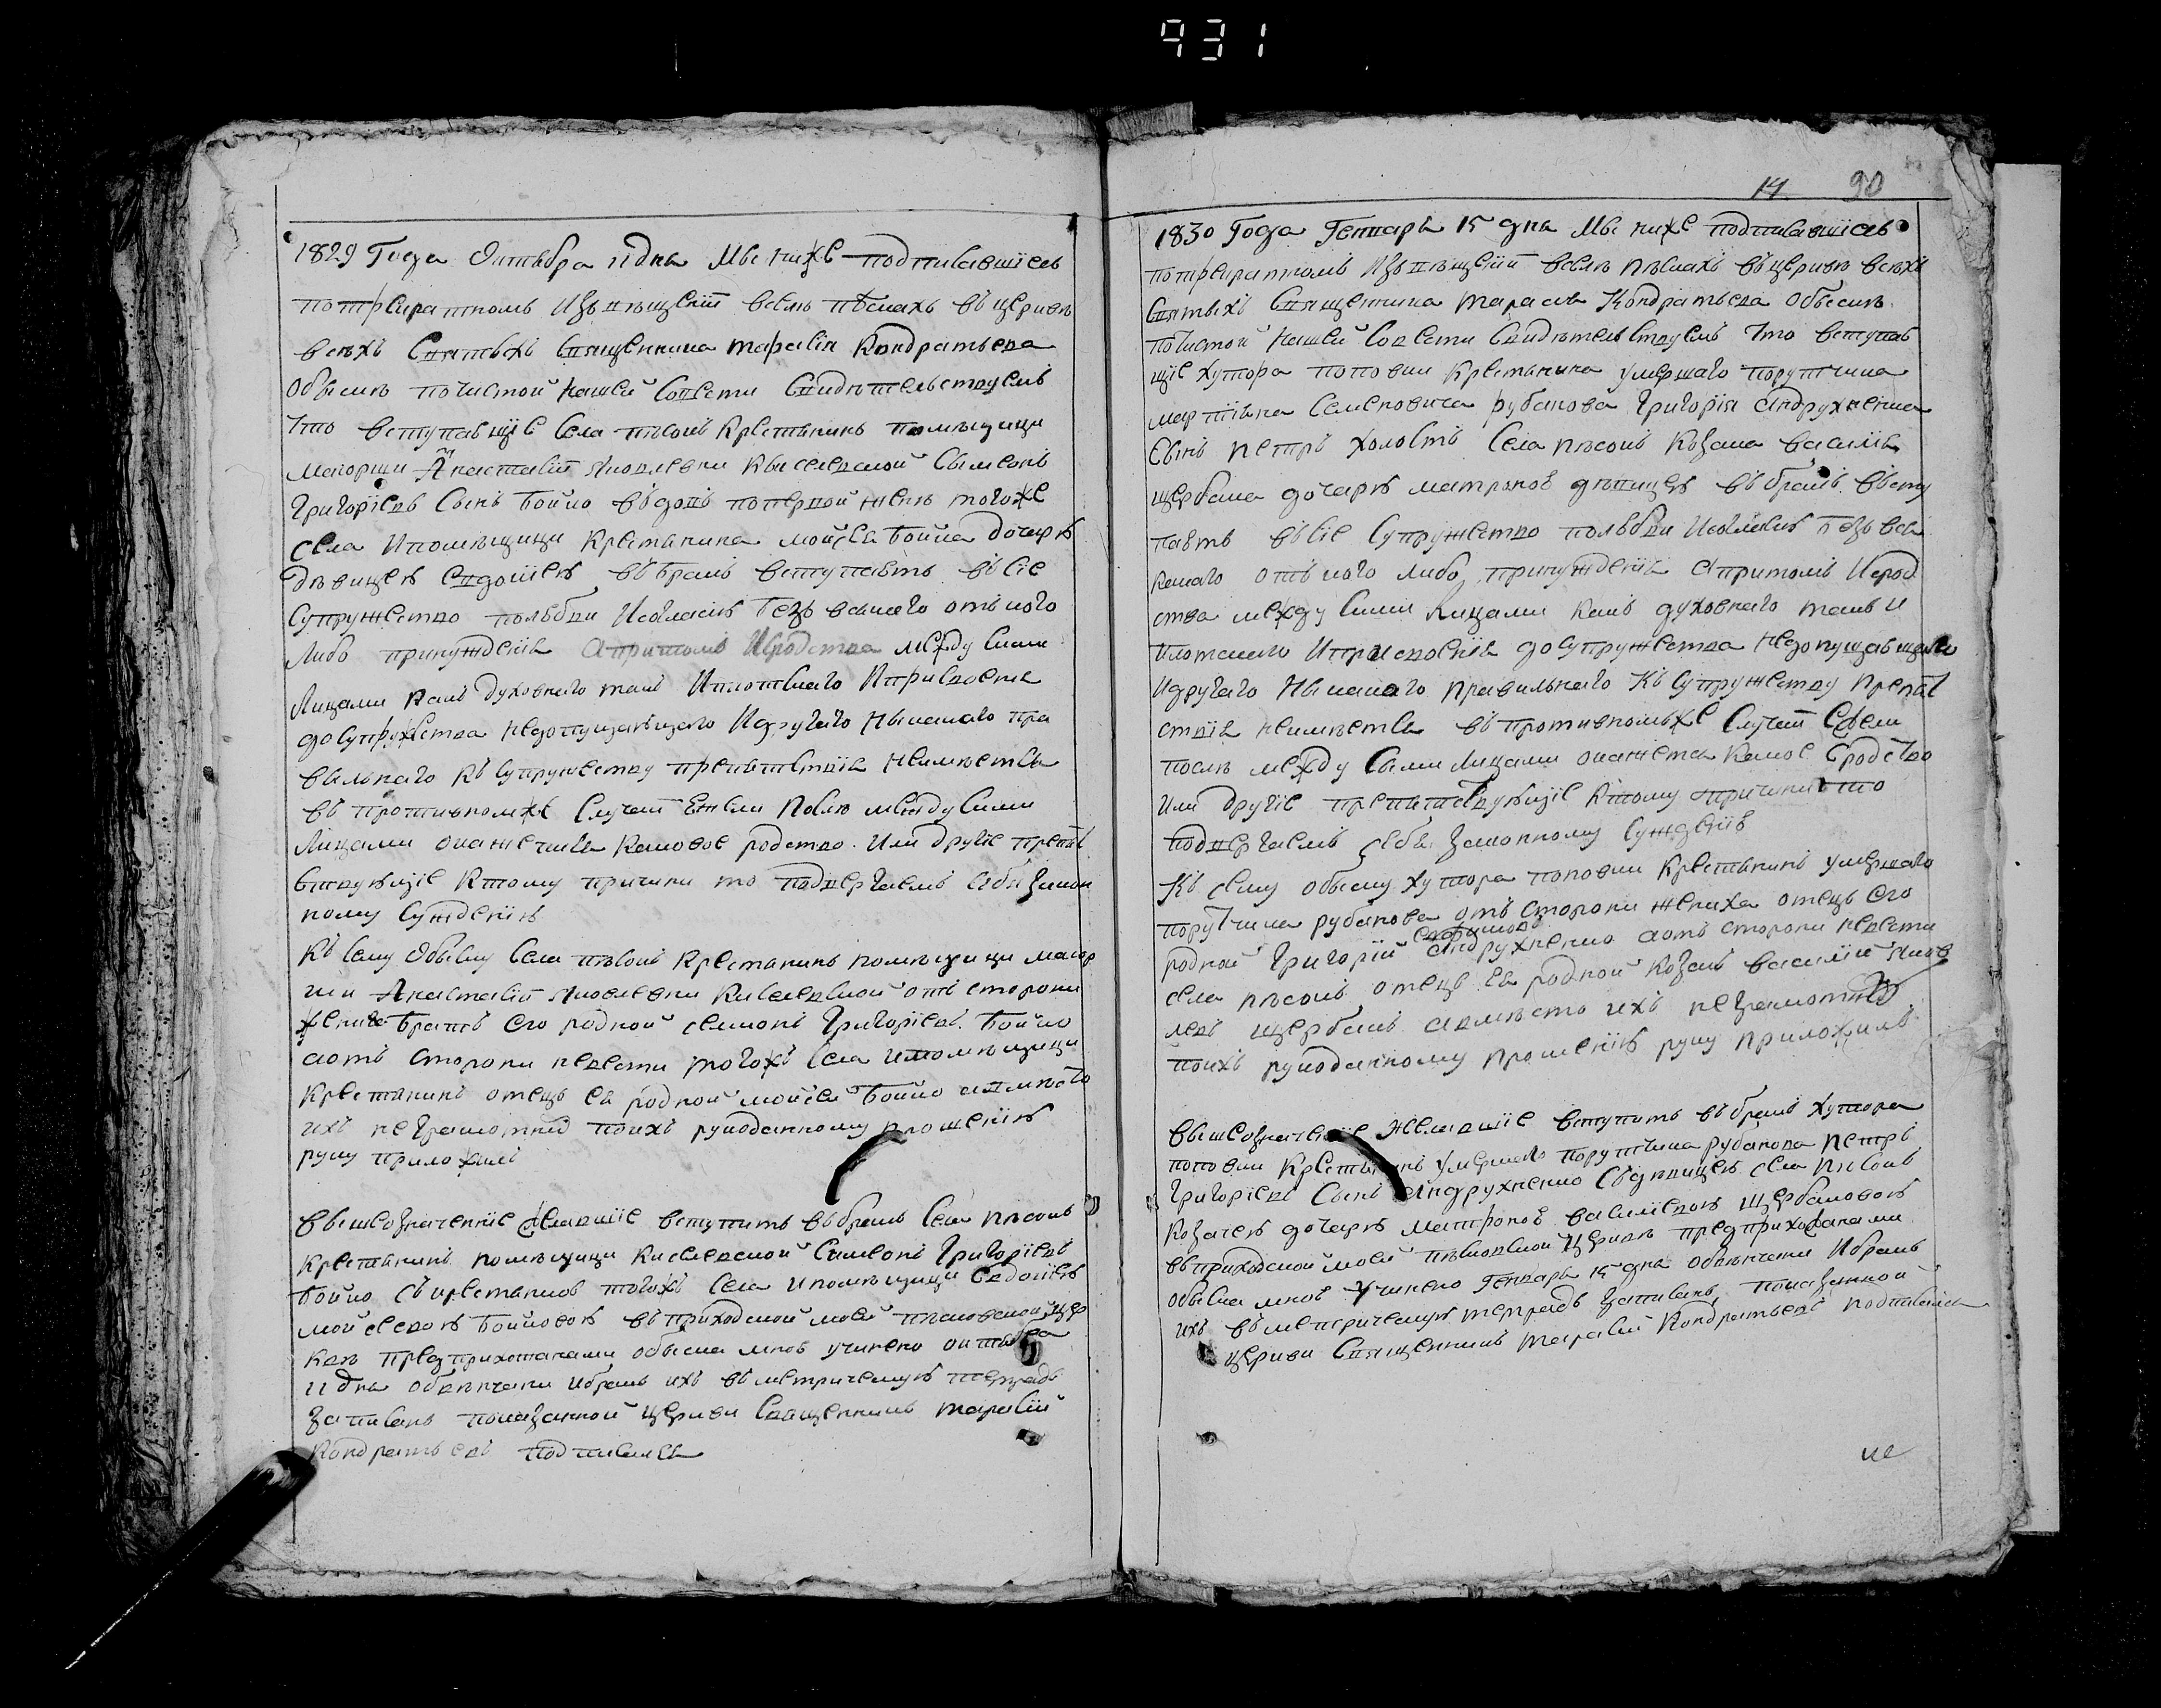 931
14 90
1829 Года Октября 11 дня Мы ниже подписавшіесь
потребиратномъ Извѣщеніи вселѣ пѣскахъ въ церквѣ
всѣхъ Святыхъ Священника тарасія Кондратьева
Обыскѣ почистой нашей Совѣсти Свидѣтельствуемъ
Что вступающіе Села пѣсокъ Крестьянинъ помѣщици
маіорши Анастасіи Яковлевни Киселевской Сѵмеонъ
Григоріевъ Сынъ бойко вдовъ попервой женѣ тогоже
села Ипомѣщици Крестьянина мойсея бойка дочерѣ
дѣвицеѣ Евдокіеѣ въ бракъ вступаютъ въ сіе
Супружество полюбви Исогласіѣ безъ всякаго отъ кого
Либо принужденія Апритомъ Иродства между Сими
Лицами какъ духовнаго такъ Иплотскаго Иприсвоенія
доСупружества недопущающаго Идругаго Ныкакого пра
вильнаго къ Супружеству препятствія неимѣется
въ противномже Случаи Ежели послѣ между Сими
Лицами окажется каковое родство. Или другіе препят
ствующіе ктому причини то подвергаемъ себя закон
ному Сужденію
Къ сему Обыску села пѣсокъ Крестьянинъ помѣщици маіор
ши Анастасіи Яковлевни Киселевской отъ сторони
жениха братъ его родной семіонъ Григоріевъ бойко
аотъ сторони невести тогожъ села ипомѣщици
Крестьянинъ отецъ ея родной мойсей бойко авмѣсто
ихъ неграмотнихъ поихъ рукоданному прошенію
руку приложилъ
Вышеозначенніе желавшіе вступить въ бракъ Села пѣсокъ
Крестьянинъ помѣщици Киселевской Сѵмеонъ Григоріевъ
бойко съ крестьянкоѣ тогожъ села ипомѣщици Евдокіеѣ
мойсеевоѣ бойковоѣ въ приходской моей пѣсковской цер
квѣ предприхожанами обыска мноѣ учинено октября
11 дня обвѣнчани ибракъ ихъ въ метрическуѣ тетрадь
записанъ показанной церкви Священникъ тарасій
Кондратьевъ подписался
1830 Года Генваря 15 дня Мы ниже подписавшіесь
потребиратномъ Извѣщеніи вселѣ пѣскахъ въ церквѣ всѣхъ
Святыхъ Священника тарасія Кондратьева Обыскѣ
почистой нашей Совѣсти Свидѣтельствуемъ Что вступаю
щіе хутора поповки Крестьянина умершаго порутчика
Семеновича рубанова Григорія Андрухненка
Сынъ петръ холостъ Села пѣсокъ козака василія
щербака дочерѣ матроноѣ дѣвицеѣ въ бракъ всту
паютъ въ сіе Супружество полюбви Исогласіѣ безъ вся
каго отъ кого либо принужденія Апритомъ Ирод
ства между Сими лицами какъ духовнаго такъ и
плотскаго Иприсвоенія доСупружества недопущающаго
Идругаго Ныкакого правильнаго къ Супружеству препят
ствія неимѣется въ противномъже Случаи Ежели
послѣ между Сими лицами окажется какое Сродство
или другіе препятствующіе ктому причини то
подвергаемъ себя законному Сужденію
Къ сему обыску хутора поповки Крестьянинъ умершаго
порутчика рубанова отъ сторони жениха отецъ его
родной Григорій Андрухненко аотъ сторони невести
села пѣсокъ отецъ ея родной козакъ василій Яков
левъ щербакъ авмѣсто ихъ неграмотнихъ
поихъ рукоданному прошенію руку приложилъ
Вышеозначенніе Желавшіе вступить въ бракъ хутора
поповки Крестьянинъ умершаго порутчика рубанова петръ
Григоріевъ Сынъ Андрухненко Съдѣвицеѣ села пѣсокъ
козачеѣ дочерѣ матроноѣ василіевоѣ щербаковоѣ
въ приходской моей пѣсковской церквѣ предприхожанами
обыска мноѣ Учинено Генваря 15 дня обвѣнчани Ибракъ
ихъ въ метрическуѣ тетрадь записанъ показанной
церкви Священникъ тарасій Кондратьевъ подписался